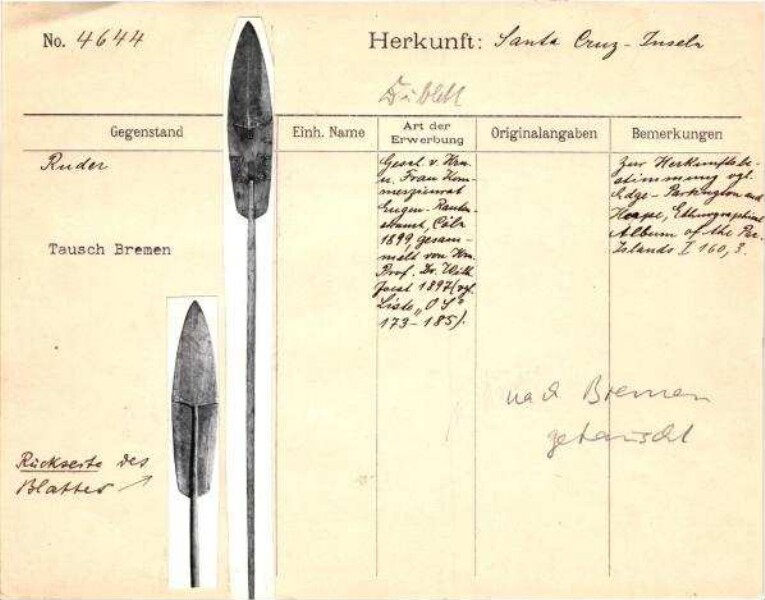 No. 4644
Herkunft: Santa Cruz-Inseln
Dublett
Gegenstand
Einh. Name
Art der
Erwerbung
Originalangaben
Bemerkungen
Ruder
Tausch Bremen
Rückseite des
Blattes
Gesch. v. Hrn.
u. Frau Kom-
merzienrat
Eugen Rauten-
strauch, Cöln
1899, gesam-
melt von Hrn.
Prof. Dr. Wilh.
Joest 1897 (vgl.
Liste „OS"
173-185).
Zur Herkunftsbe-
stimmung vgl.
Edge-Partington and
Heape, Ethnographical
Album of the Pac.
Islands I 160, 3.
nach Bremen
getauscht